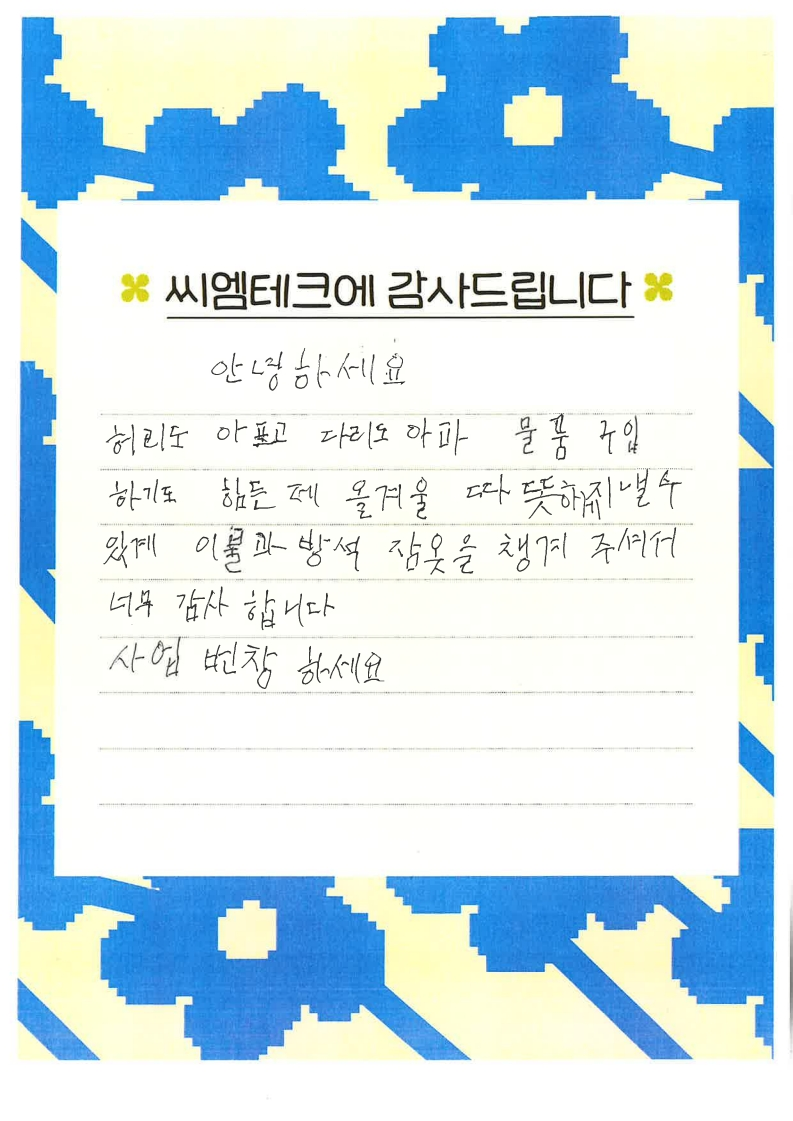 씨엠테크에 감사드립니다
안녕하세요
허리도 아프고 다리도 아파 물품 구입
하기도 힘든 데 올겨울 따뜻하게 지낼 수
있게 이불과 방석 잠옷을 챙겨 주셔서
너무 감사 합니다
사업 번창 하세요